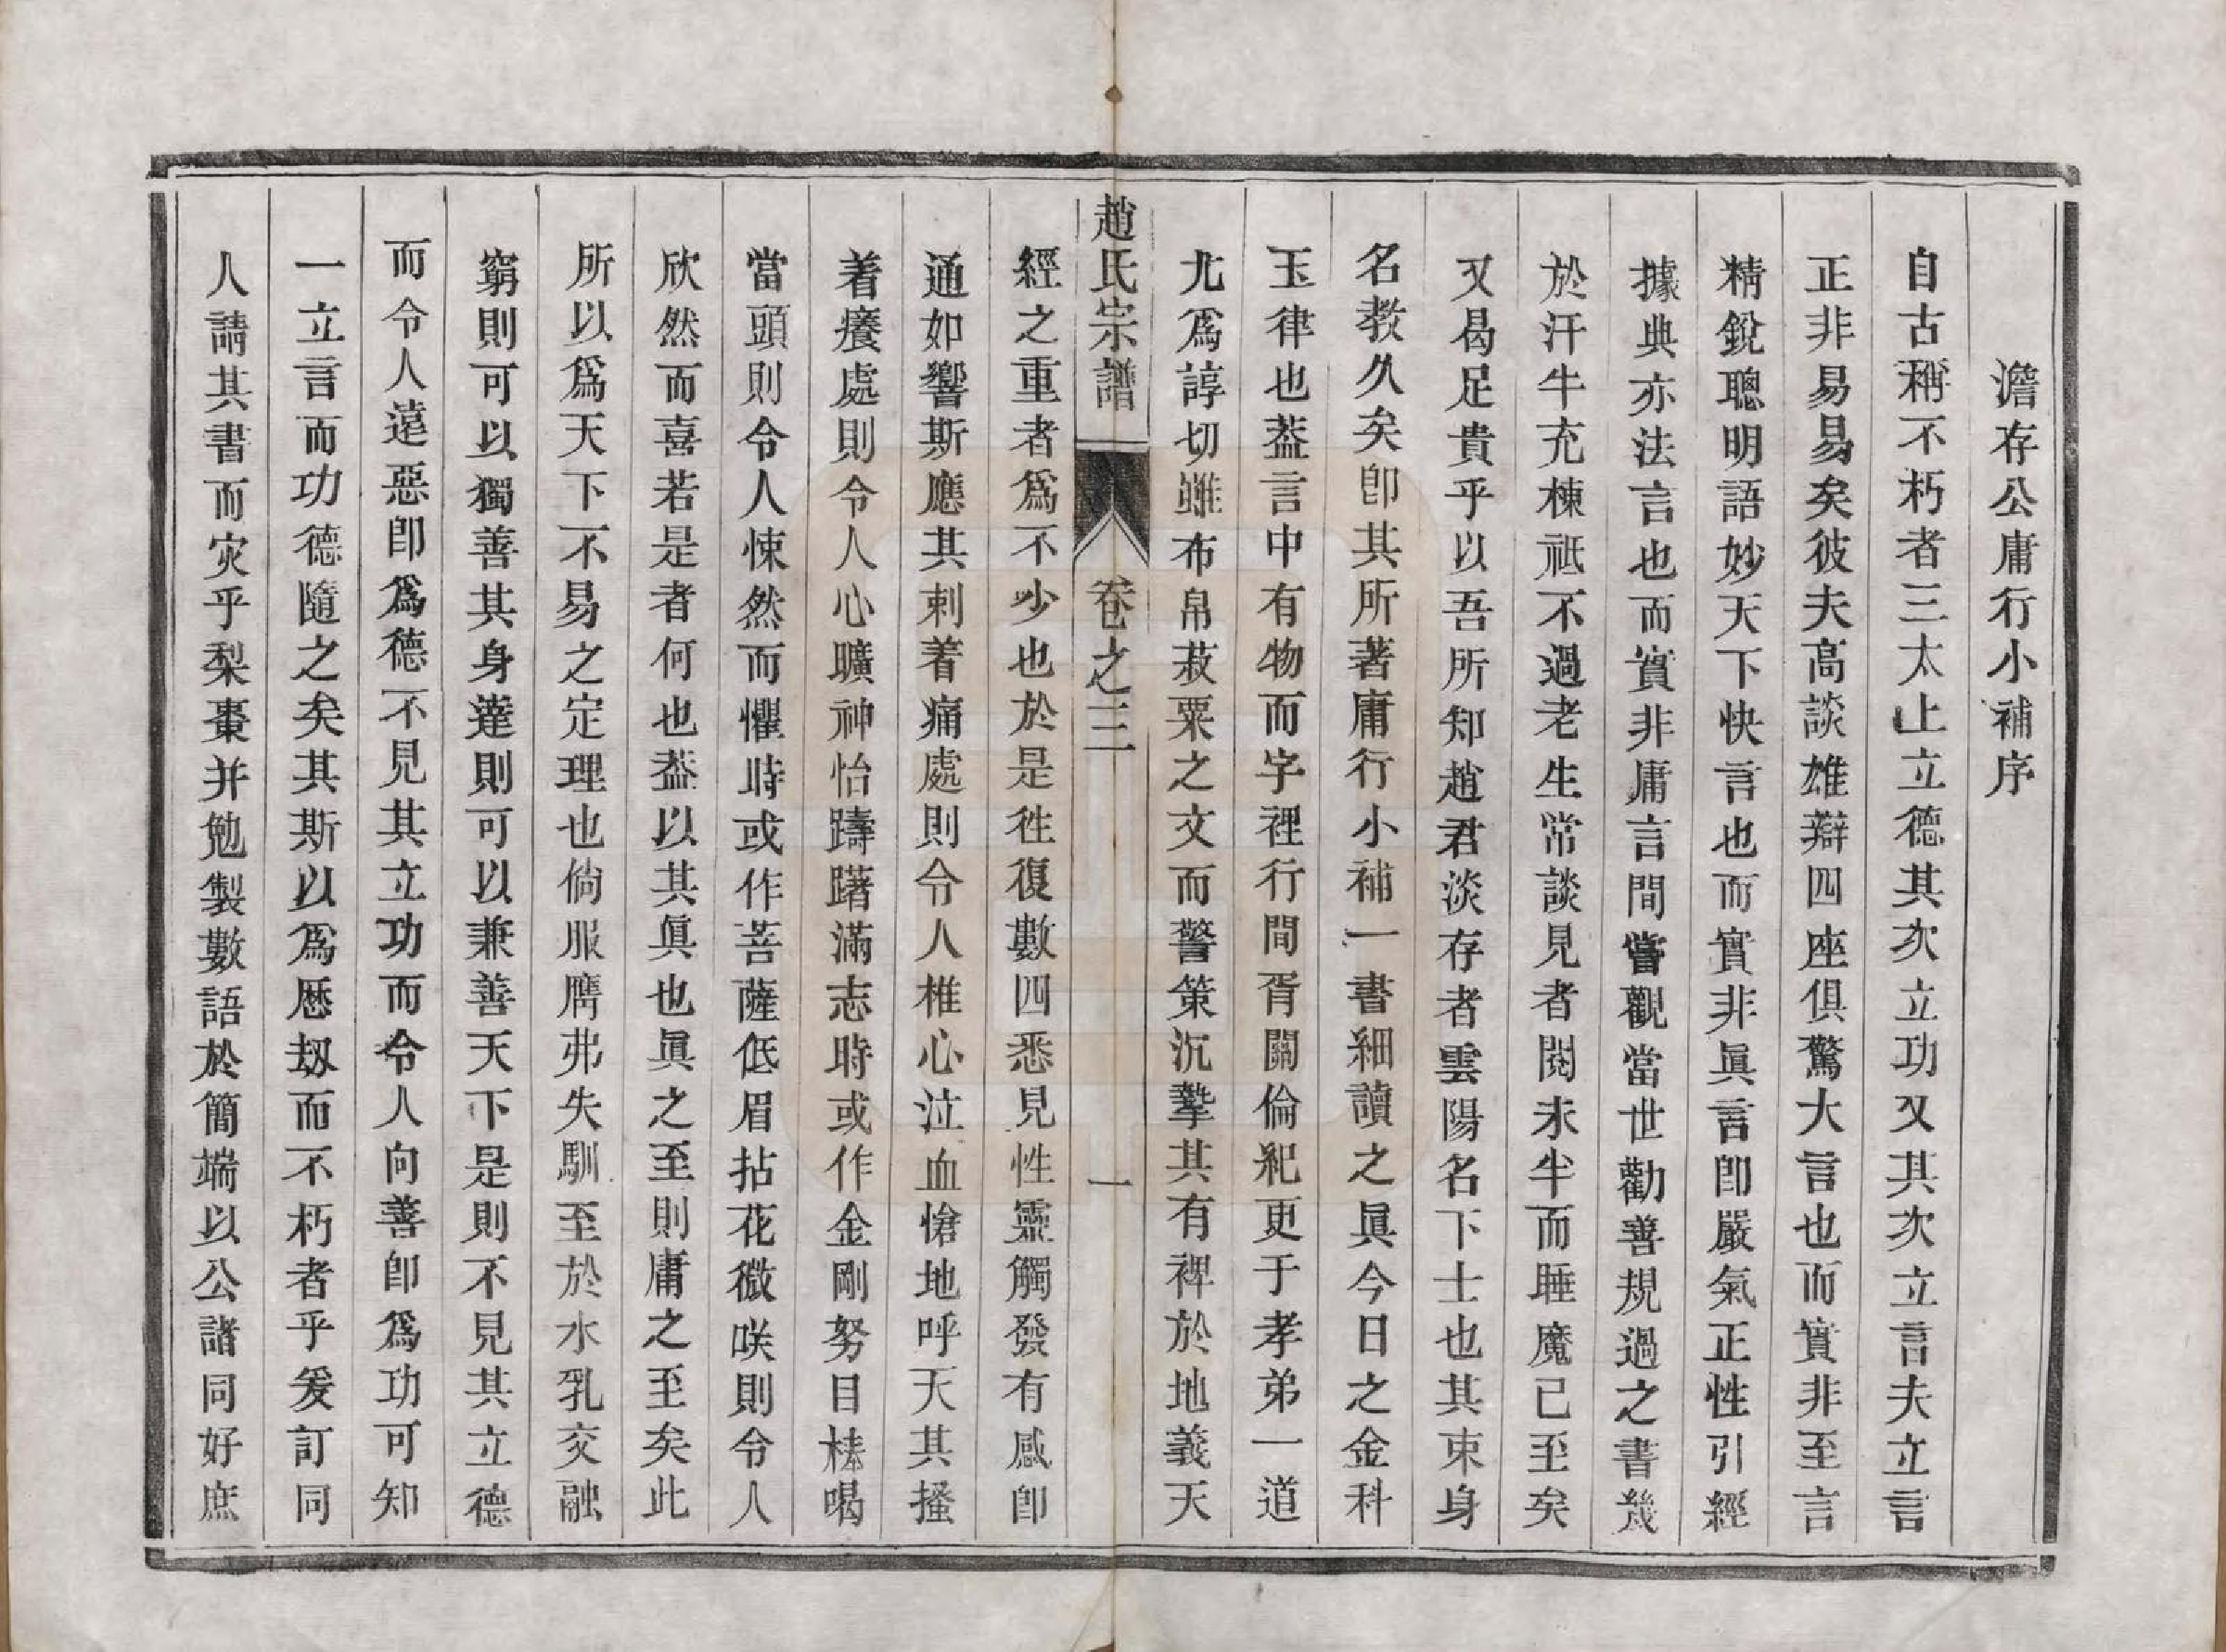 澹存公庸行小補序
自古稱不朽者三太上立德其次立功又其次立言夫立言
正非易易矣彼夫高談雄辯四座俱驚大言也而實非至言
精銳聰明語妙天下快言也而實非眞言卽嚴氣正性引經
據典亦法言也而實非庸言間嘗觀當世勸善規過之書幾
於汗牛充棟祗不過老生常談見者閱未半而睡魔已至矣
又曷足貴乎以吾所知趙君淡存者雲陽名下士也其束身
名教久矣卽其所著庸行小補一書細讀之眞今日之金科
玉律也葢言中有物而字裡行間胥關倫紀更于孝弟一道
尤爲諄切雖布帛菽粟之文而警策沉摯其有裨於地義天
趙氏宗譜
卷之三
一
經之重者爲不少也於是徃復數四悉見性靈觸發有感卽
通如響斯應其刺着痛處則令人椎心泣血愴地呼天其搔
着癢處則令人心曠神怡躊躇滿志時或作金剛努目棒喝
當頭則令人悚然而懼時或作菩薩低眉拈花微咲則令人
欣然而喜若是者何也葢以其眞也眞之至則庸之至矣此
所以爲天下不易之定理也倘服膺弗失馴至於水乳交融
窮則可以獨善其身達則可以兼善天下是則不見其立德
而令人遠惡卽爲德不見其立功而令人向善卽爲功可知
一立言而功德隨之矣其斯以爲歷刼而不朽者乎爰訂同
人請其書而灾乎梨棗并勉製數語於簡端以公諸同好庶